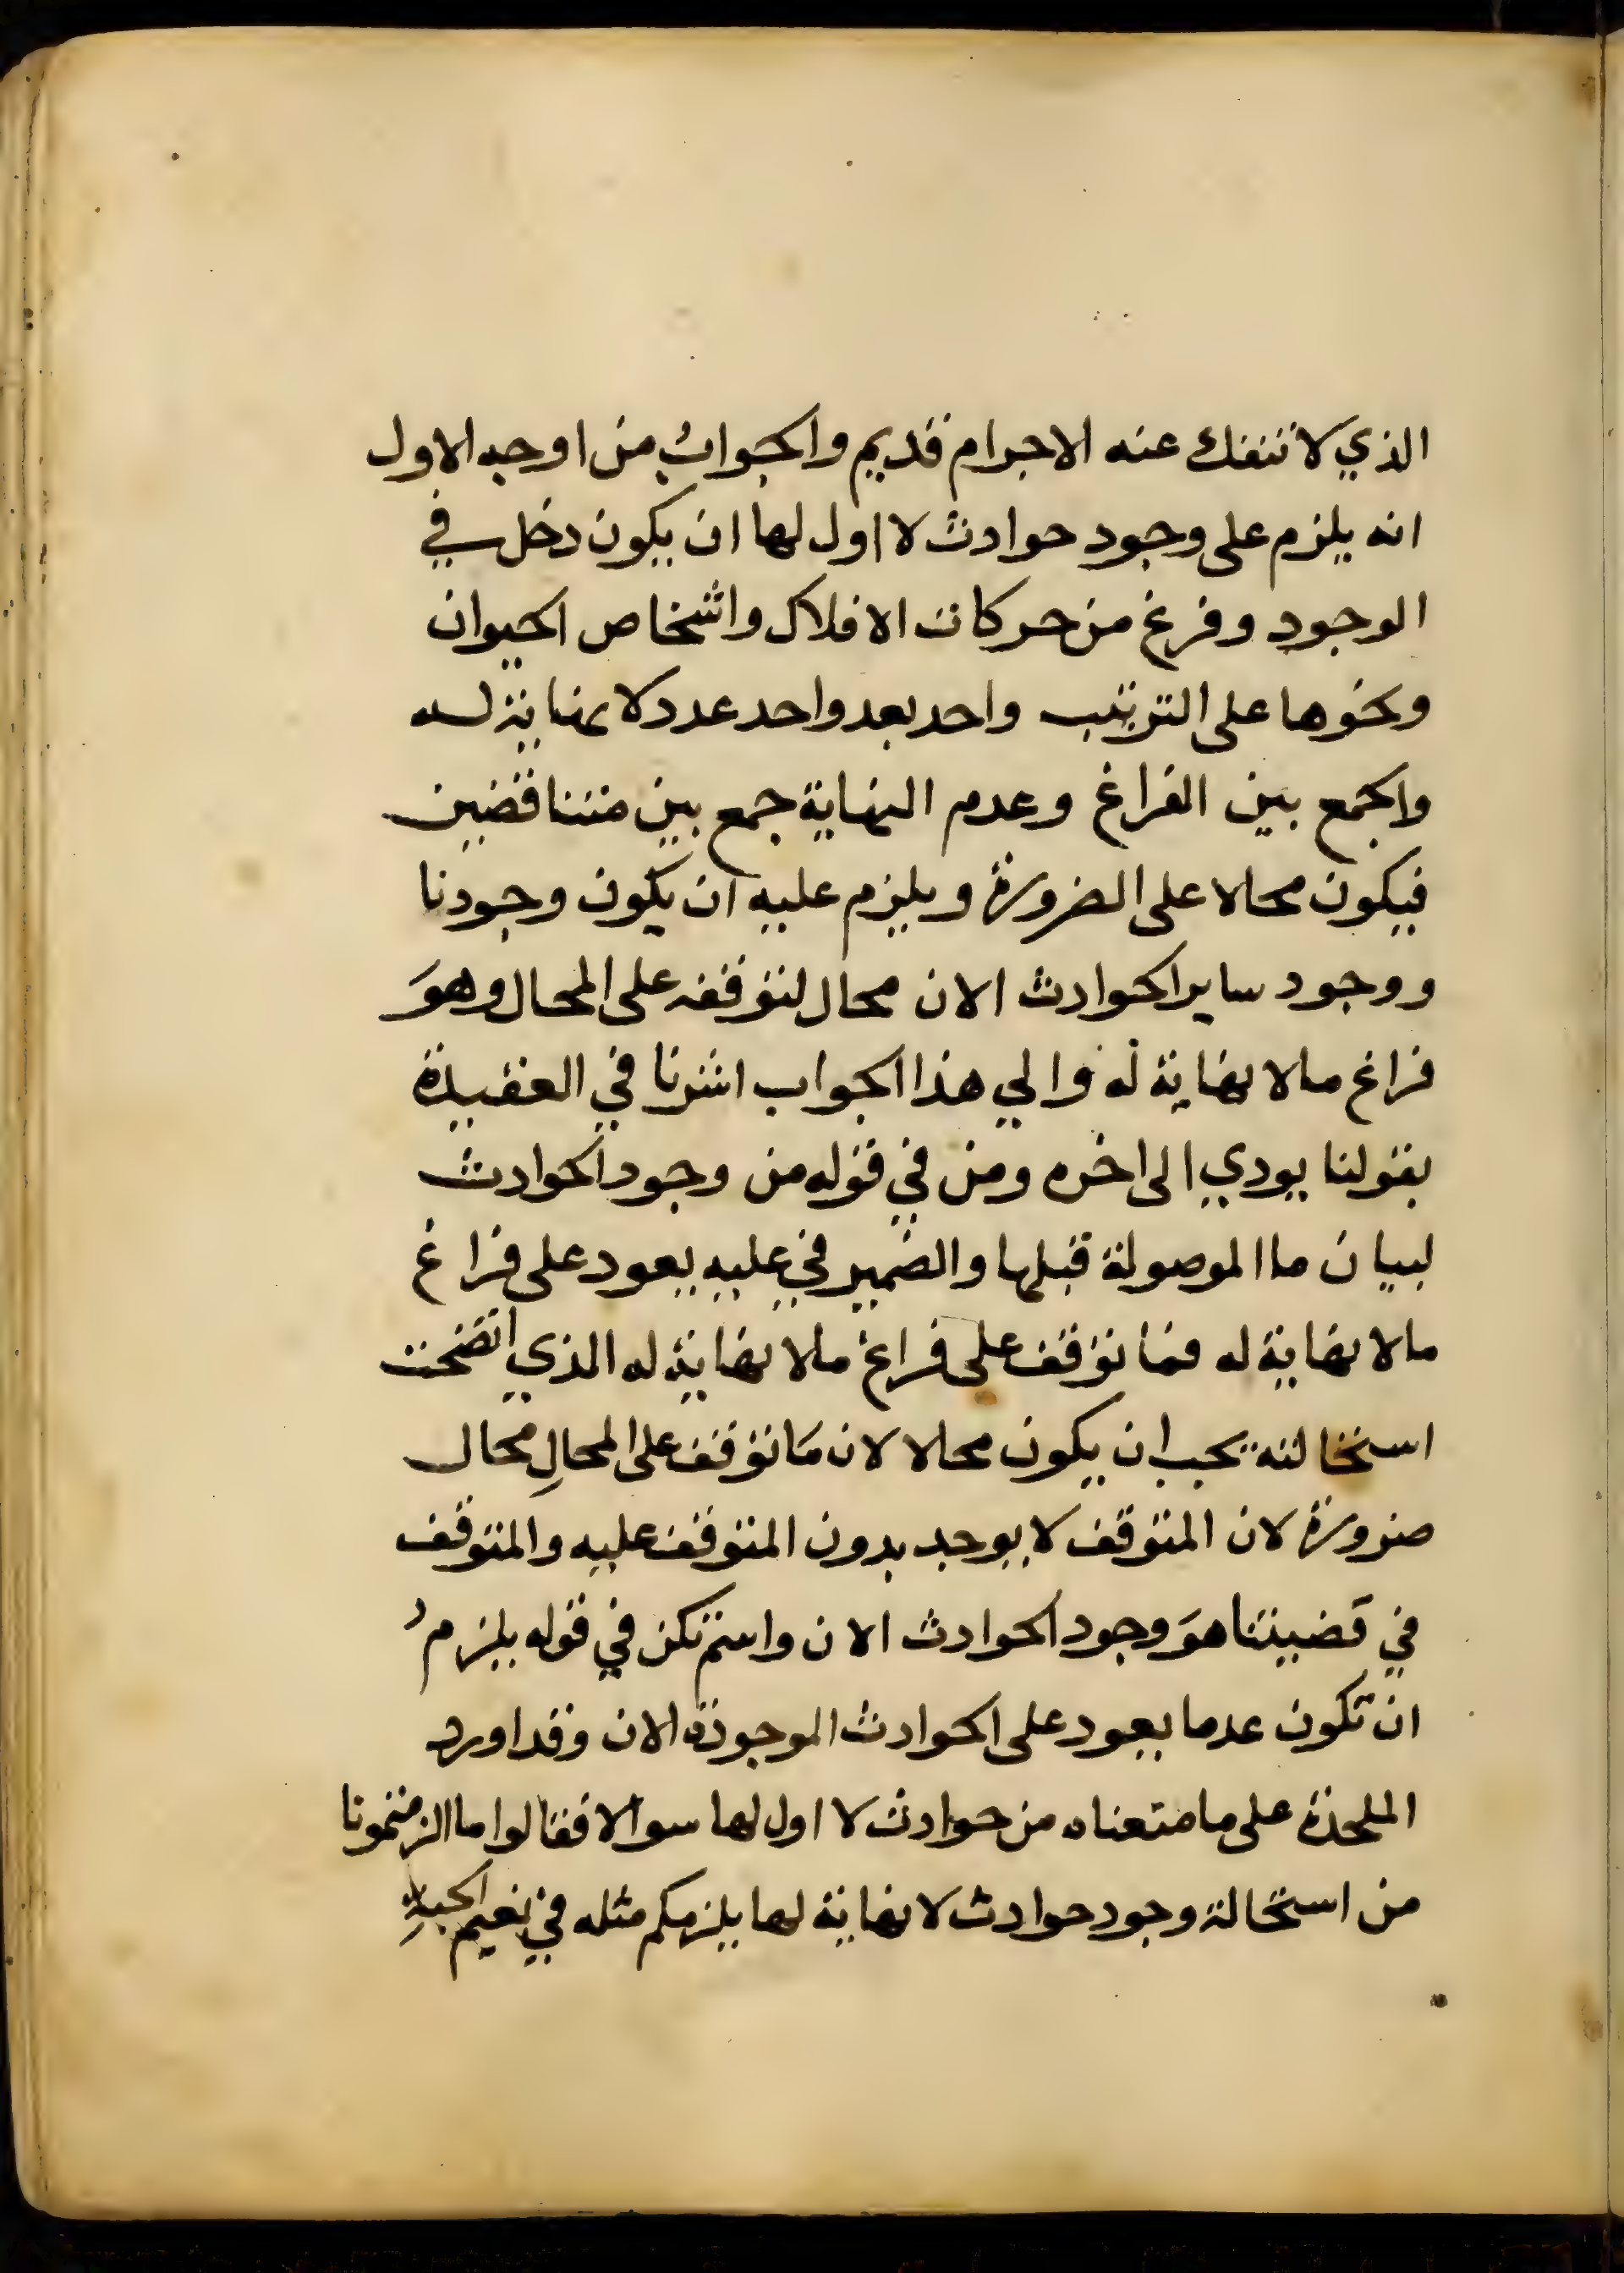 الذي لا تنفك عنه الاجرام قديم والجواب من اوجه الاول
انه يلزم على وجود حوادث لا اول لها ان يكون دخل في
الوجود وفرغ من حركات الافلاك واشخاص الحيوان
ونحوها على الترتيب واحد بعد واحد عدد لا نهاية له
والجمع بين الفراغ وعدم النهاية جمع بين متناقضين
فيكون محالا على الضرورة ويلزم عليه ان يكون وجودنا
ووجود ساير الحوادث الان محال لتوقفه على المحال وهو
فراغ مالا نهاية له والي هذا الجواب اشرنا في العقيدة
بقولنا يودي الى اخره ومن في قوله من وجود الحوادث
لبيان ما الموصولة قبلها والضمير في عليه يعود على فراغ
مالا نهاية له فما توقف على فراغ مالا نهاية له الذي اتضحت
استحالته يجب ان يكون محالا لان ما توقف على المحالِ محال
ضرورة لان المتوقف لا يوجد بدون المتوقف عليه والمتوقف
في قضيتنا هوَ وجود الحوادث الان واسم تكن في قوله يلزمُ
ان تكون عدما يعود على الحوادث الموجودة الان وقد اورد
الملحدة على ما منعناه من حوادث لا اول لها سوالا فقالوا ما الزمتمونا
من استحالة وجود حوادث لا نهاية لها يلزمكم مثله في نعيم الجنةِ